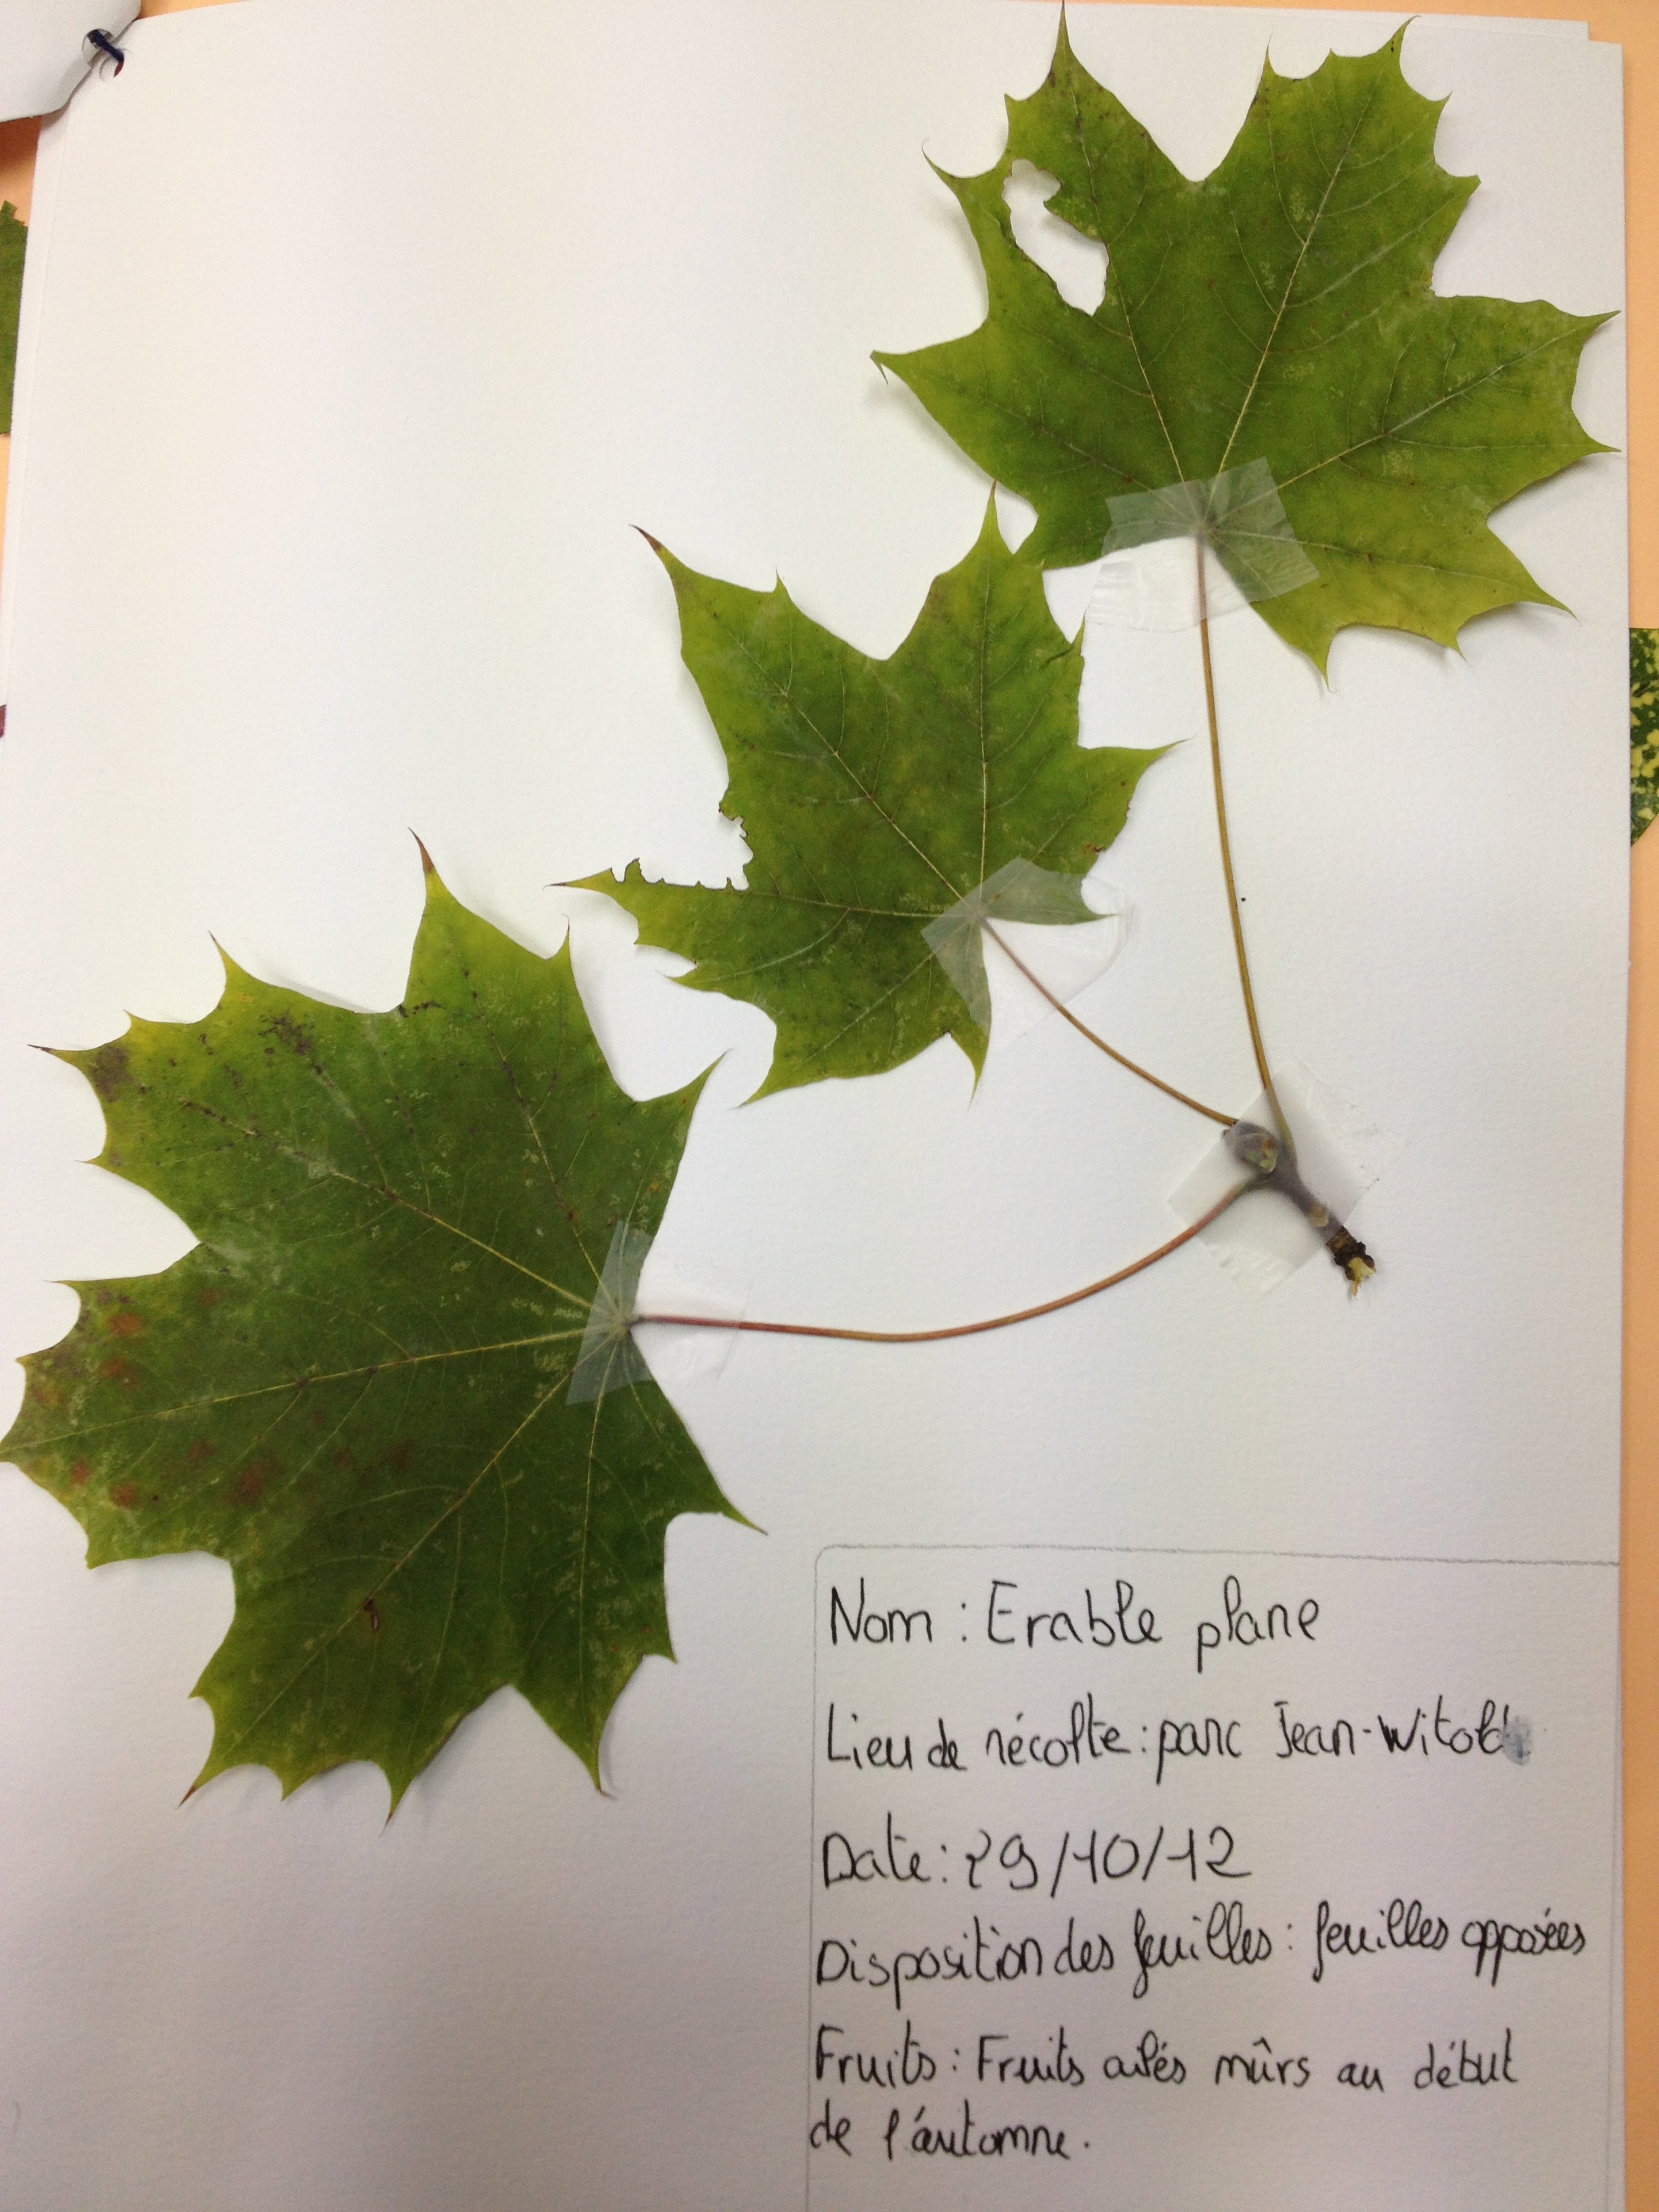 Nom : Erable plane
Lieu de récolte : parc Jean-Witold
Date : 29/10/12
Disposition des feuilles : feuilles opposées
Fruits : Fruits ailés mûrs au début
de l'automne.